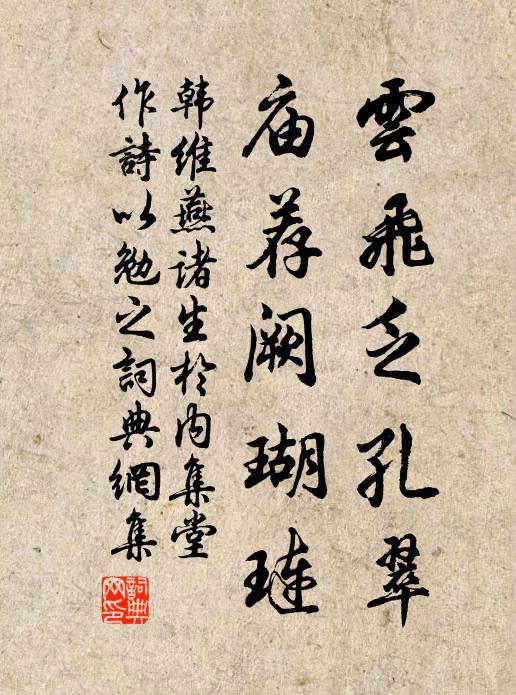 雲飛乏孔翠
庙荐阙瑚琏
韩維燕诸生於内集堂
作詩以勉之詞典網集
詞典